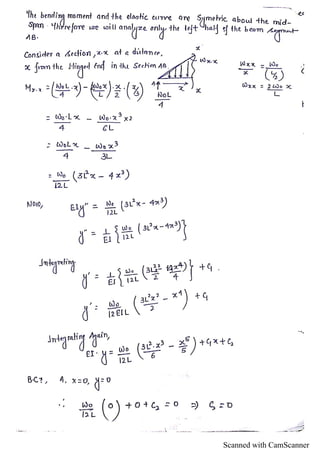 The bending moment and the elastic curve are Symetric about the mid-
span. Therefore we will analyze only the left half of the beam segment
AB.
Consider a section, x-x at a distance,
x from the hinged end in the section AB
x
Wx-x
A
x
x
W₀L/4
Wxx/x = W₀/(L/2)
Wxx = 2W₀x/L
Mx-x = (W₀L/4)x - (W₀x/L)·x/2·(x/3)
= W₀·Lx/4 - W₀·x³x2/6L
= W₀Lx/4 - W₀x³/3L
= W₀/12L (3L²x - 4x³)
Now, EIy'' = W₀/12L (3L²x - 4x³)
y'' = 1/EI { W₀/12L (3L²x - 4x³) }
Integrating
y' = 1/EI { W₀/12L (3L²x²/2 - 4x⁴/4) } + C₁.
y' = W₀/12EIL (3L²x²/2 - x⁴) + C₁
Integrating Again,
EI·y = W₀/12L (3L²·x³/6 - x⁵/5) + C₁x + C₂
BC₁, A, x=0, y=0
∴ W₀/12L (0) + 0 + C₂ = 0 => C₂ = 0
Scanned with CamScanner